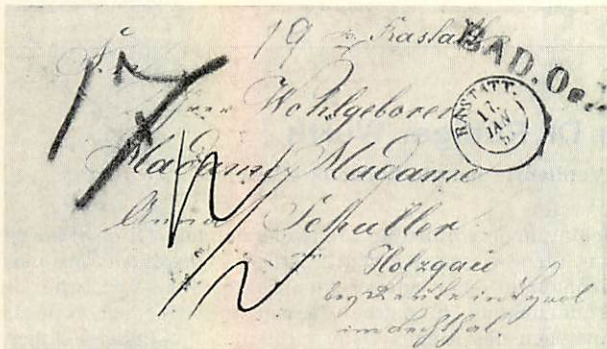 19 Rastatt
BAD. O
RASTATT.
17.
JAN
17
Wohlgeboren
Madame, Madame
Anna Schuller
Holzgau
bey Reutte in Tyrol
im Lechthal.